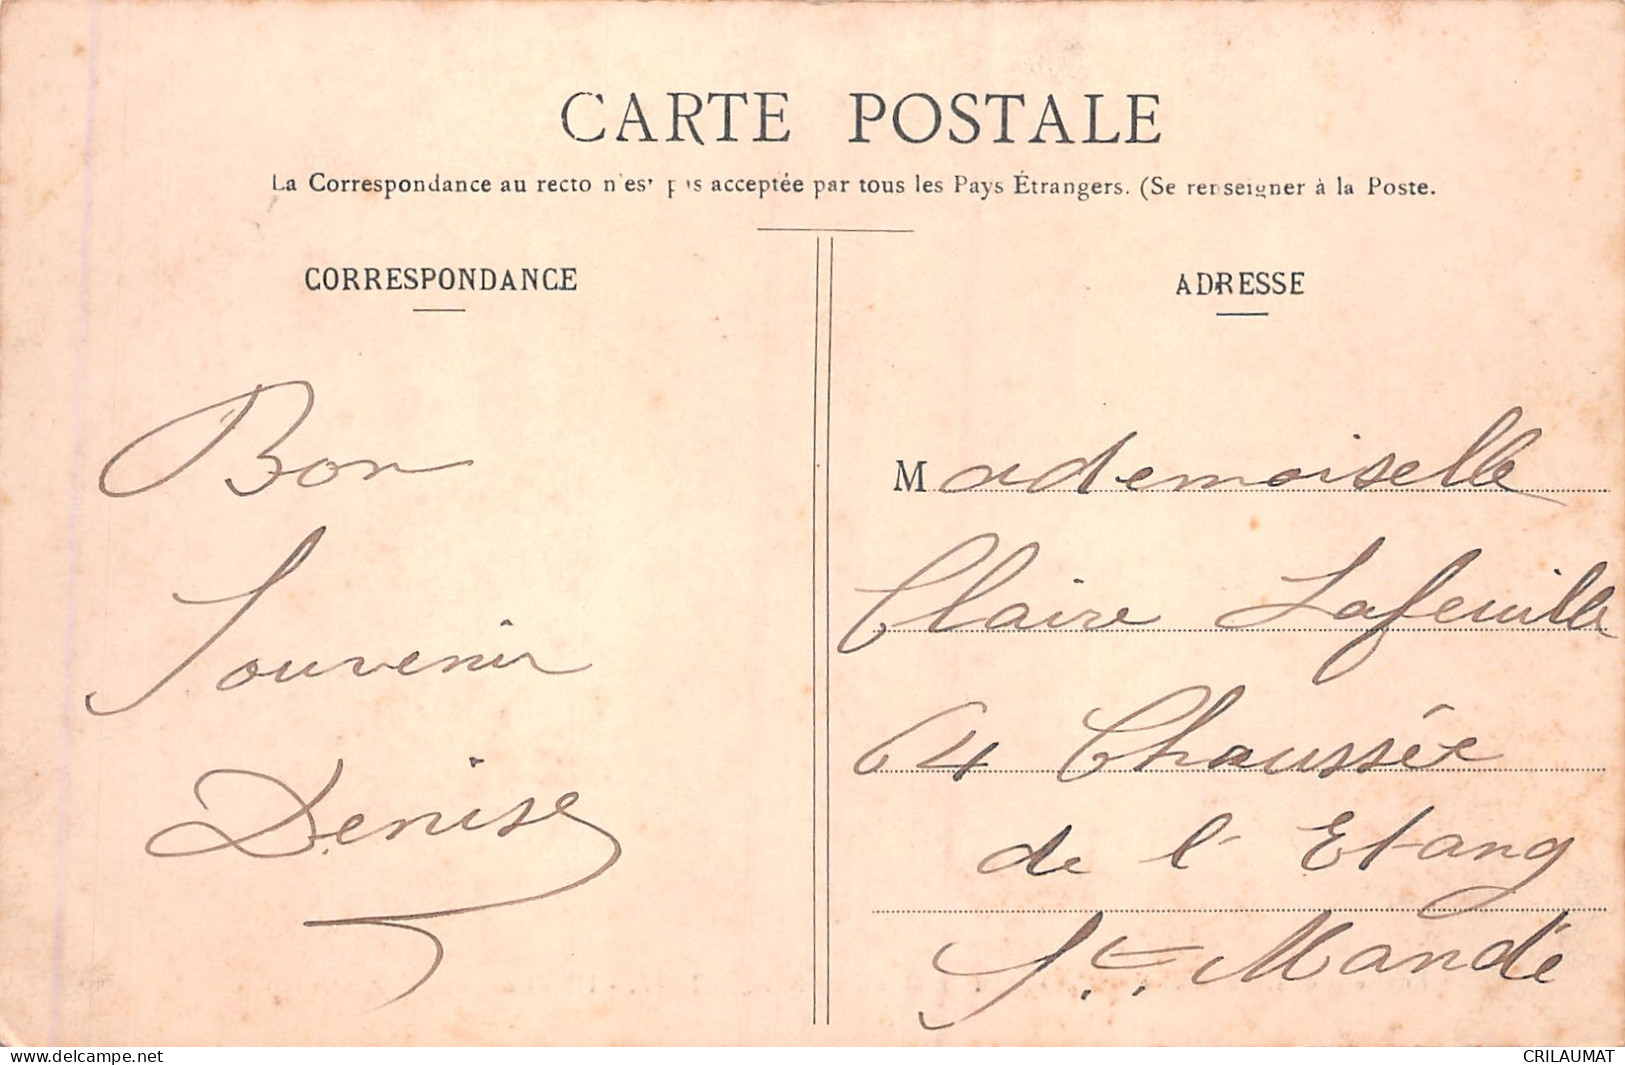 CARTE POSTALE
La Correspondance au recto n'est pas acceptée par tous les Pays Étrangers. (Se renseigner à la Poste.
CORRESPONDANCE
Bon
Souvenir
Denise
ADRESSE
Mademoiselle
Claire Lafeuille
64 Chaussée
de l'Etang
St. Mandé
www.delcampe.net
CRILAUMAT